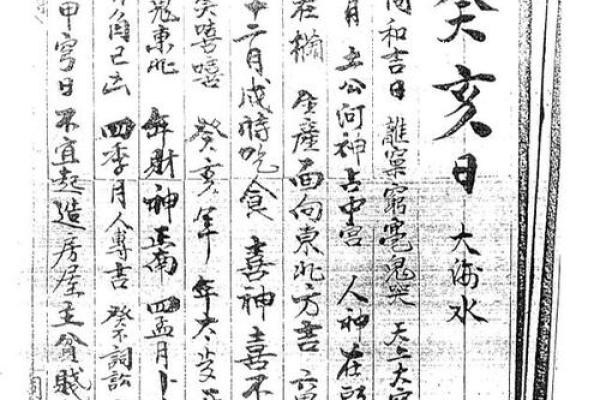 癸亥日 大海水
同和吉日 離窠窮 鬼哭 天上大空
月 土公河神占中宮 人神在
在 生產面向東北方吉 六
十二月戌時吃食 喜神喜不
笑嘻嘻 癸亥年 年大
鬼東北 年財神正南 四孟月卜
角己亡 四季月人專吉 癸不詞訟
甲寅日 不宜起造房屋主貧賤